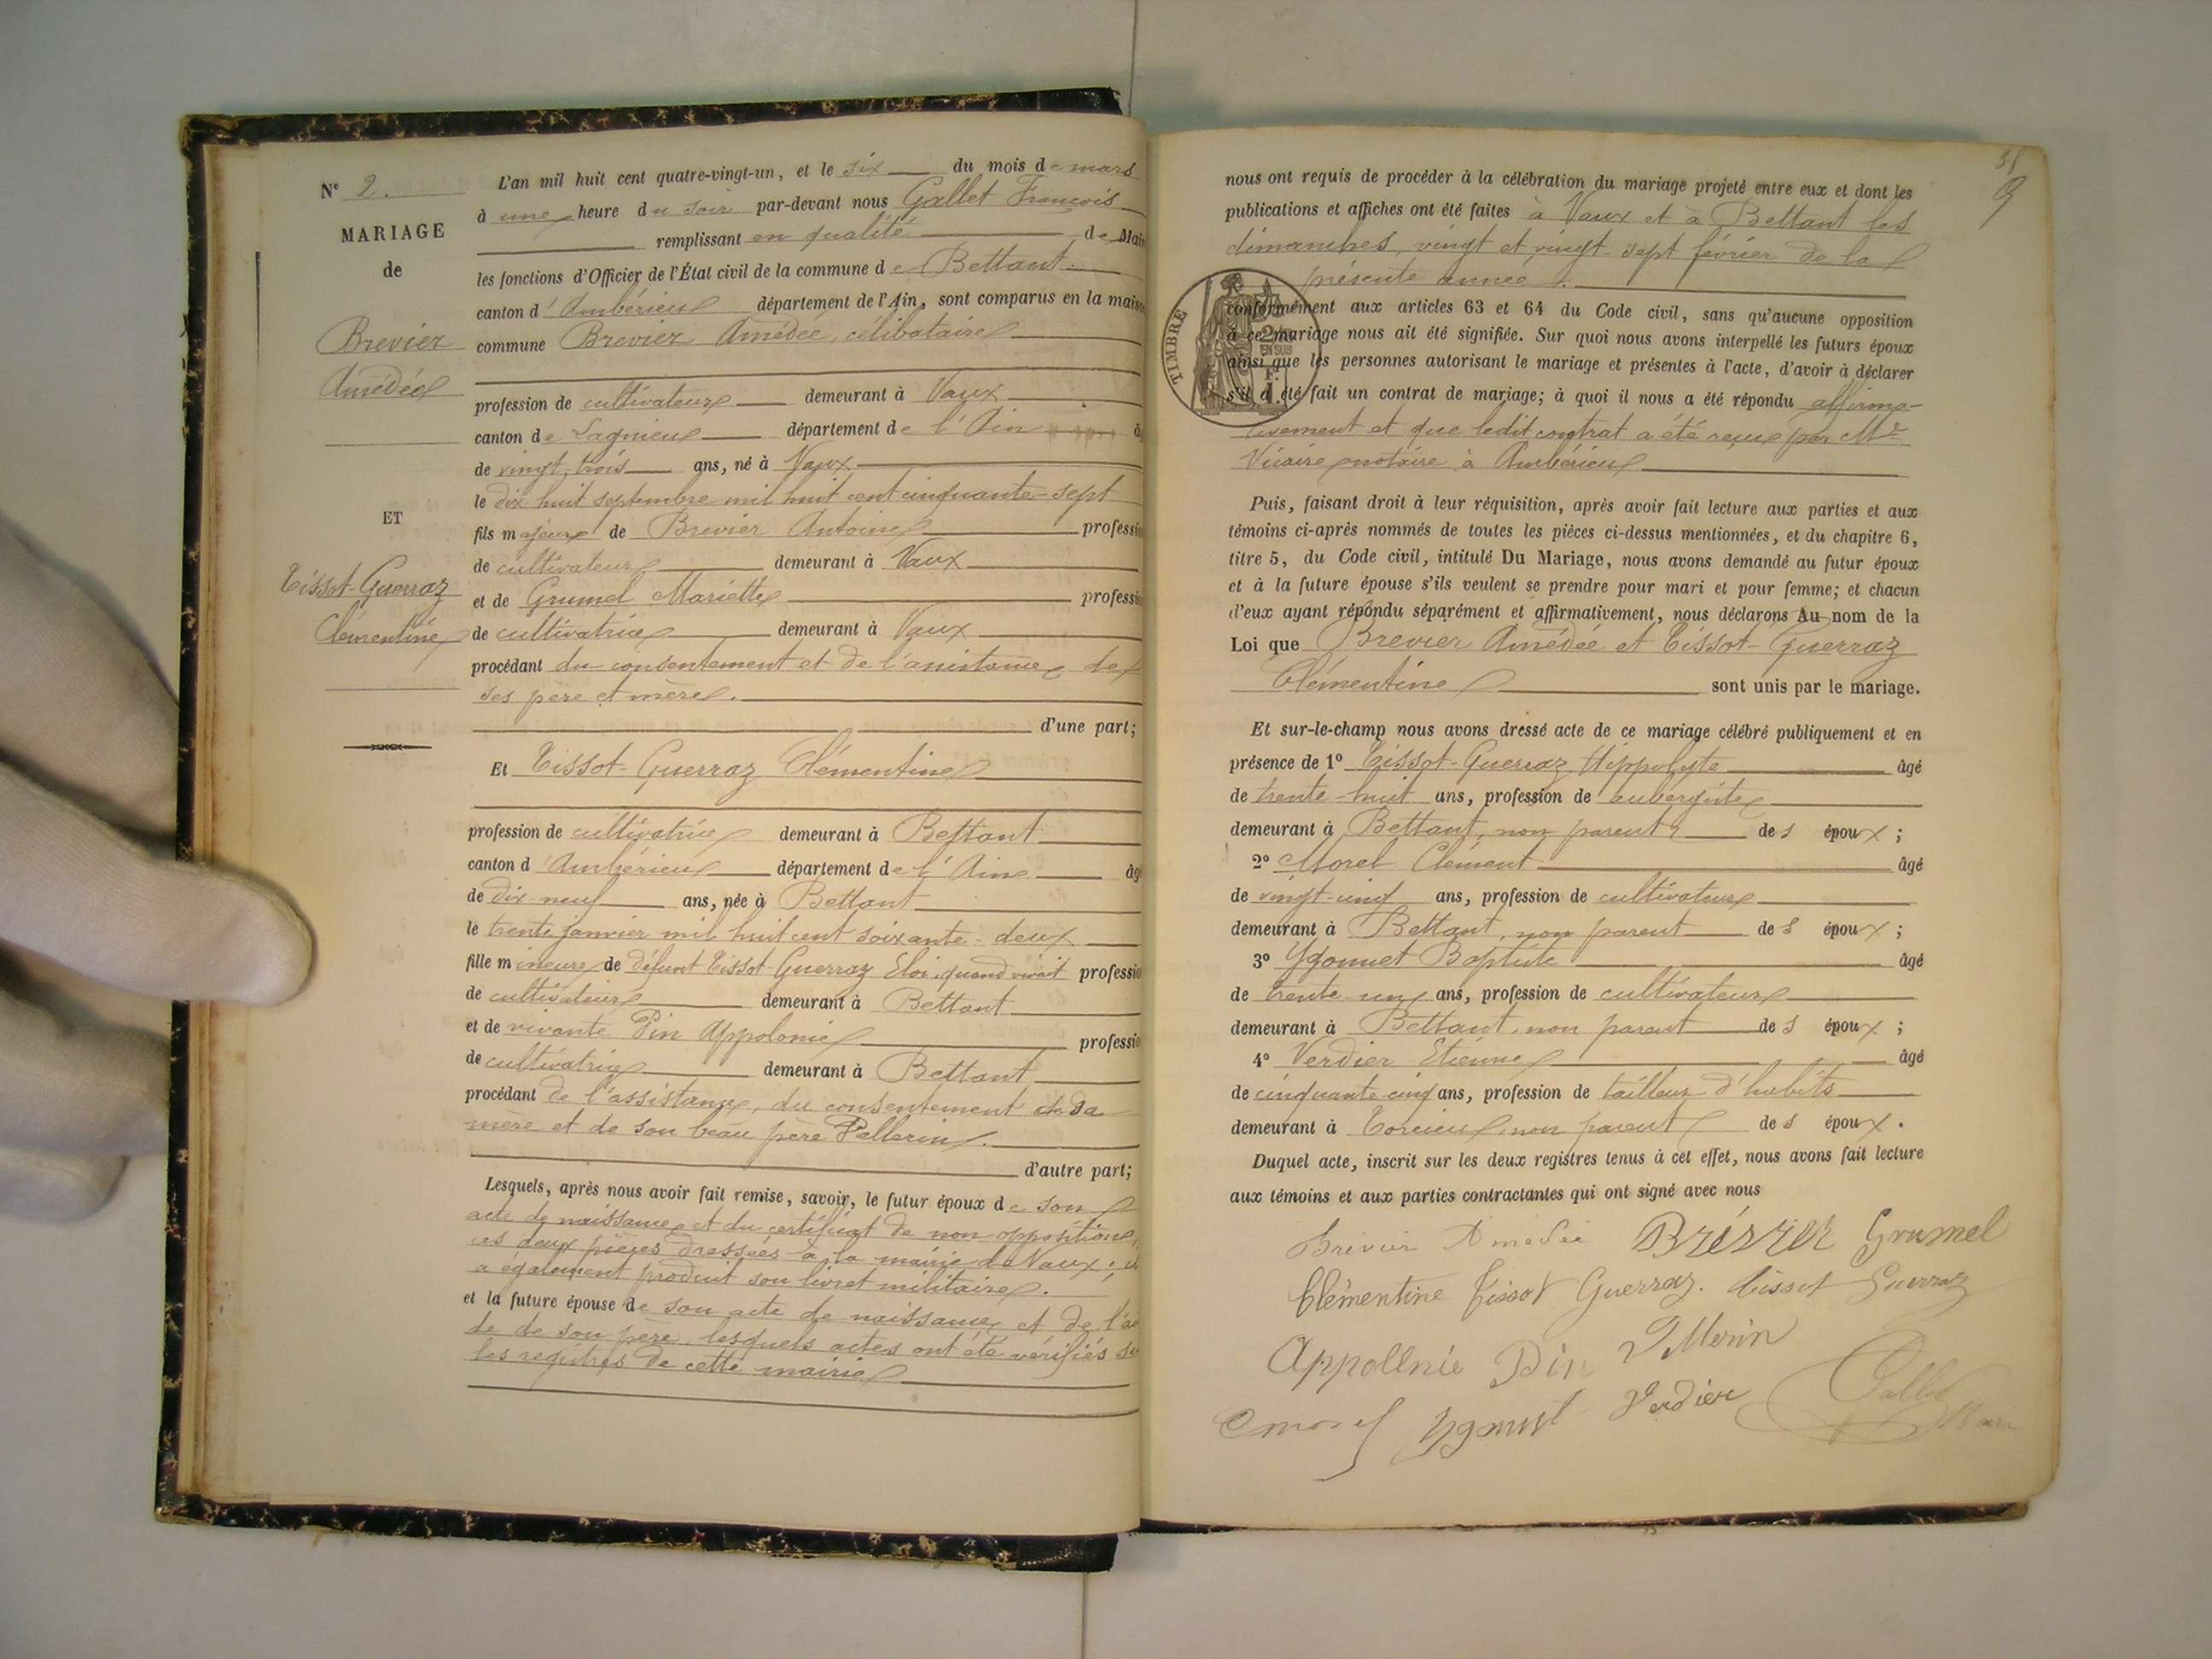 N° 2.
MARIAGE
de
Brevier
Amédée
ET
Tissot-Guerraz
Clémentine
L'an mil huit cent quatre-vingt-un, et le six du mois de mars
à une heure du soir par-devant nous Gallet François
remplissant en qualité de Mair
les fonctions d'Officier de l'État civil de la commune de Bettant
canton d'Ambérieux département de l'Ain, sont comparus en la maison
commune Brevier Amédée, célibataire
profession de cultivateur demeurant à Vaux
canton de Lagnieu département de l'Ain â
de vingt-trois ans, né à Vaux
le dix huit septembre mil huit cent cinquante-sept
fils majeur de Brevier Antoine professio
de cultivateur demeurant à Vaux
et de Grumel Mariette professio
de cultivatrice demeurant à Vaux
procédant du consentement et de l'assistance de
ses père et mère.
d'une part;
Et Tissot-Guerraz Clémentine
profession de cultivatrice demeurant à Bettant
canton d'Ambérieux département de l'Ain âg
de dix-neuf ans, née à Bettant
le trente janvier mil huit cent soixante-deux
fille mineure de défunt Tissot-Guerraz Eloi, quand vivait professio
de cultivateur demeurant à Bettant
et de vivante Pin Appolonie professio
de cultivatrice demeurant à Bettant
procédant de l'assistance, du consentement de sa
mère et de son beau père Pellerin.
d'autre part;
Lesquels, après nous avoir fait remise, savoir, le futur époux de son
acte de naissance et du certificat de non opposition,
ces deux pièces dressées à la mairie de Vaux; il
a également produit son livret militaire.
et la future épouse de son acte de naissance et de l'ac
de de son père, lesquels actes ont été vérifiés su
les registres de cette mairie
51
9
nous ont requis de procéder à la célébration du mariage projeté entre eux et dont les
publications et affiches ont été faites à Vaux et à Bettant les
dimanches, vingt et vingt-sept février de la
présente année.
TIMBRE
2
EN SUS
F.
conformément aux articles 63 et 64 du Code civil, sans qu'aucune opposition
à ce mariage nous ait été signifiée. Sur quoi nous avons interpellé les futurs époux
ainsi que les personnes autorisant le mariage et présentes à l'acte, d'avoir à déclarer
s'il a été fait un contrat de mariage; à quoi il nous a été répondu affirma-
tivement et que ledit contrat a été reçu par Me
Vicaire notaire à Ambérieux
Puis, faisant droit à leur réquisition, après avoir fait lecture aux parties et aux
témoins ci-après nommés de toutes les pièces ci-dessus mentionnées, et du chapitre 6,
titre 5, du Code civil, intitulé Du Mariage, nous avons demandé au futur époux
et à la future épouse s'ils veulent se prendre pour mari et pour femme; et chacun
d'eux ayant répondu séparément et affirmativement, nous déclarons Au nom de la
Loi que Brevier Amédée et Tissot-Guerraz
Clémentine sont unis par le mariage.
Et sur-le-champ nous avons dressé acte de ce mariage célébré publiquement et en
présence de 1° Tissot-Guerraz Hippolyte âgé
de trente-huit ans, profession de aubergiste
demeurant à Bettant, non parent des époux;
2° Morel Clément âgé
de vingt-cinq ans, profession de cultivateur
demeurant à Bettant, non parent des époux;
3° Ygonnet Baptiste âgé
de trente-un ans, profession de cultivateur
demeurant à Bettant, non parent des époux;
4° Verdier Etienne âgé
de cinquante-cinq ans, profession de tailleur d'habits
demeurant à Torcieu, non parent des époux.
Duquel acte, inscrit sur les deux registres tenus à cet effet, nous avons fait lecture
aux témoins et aux parties contractantes qui ont signé avec nous
Brevier Amédée Brévier Grumel
Clémentine Tissot Guerraz. Tissot Guerraz
Appollnie Pin
C morel Ygonnet Verdier Gallet